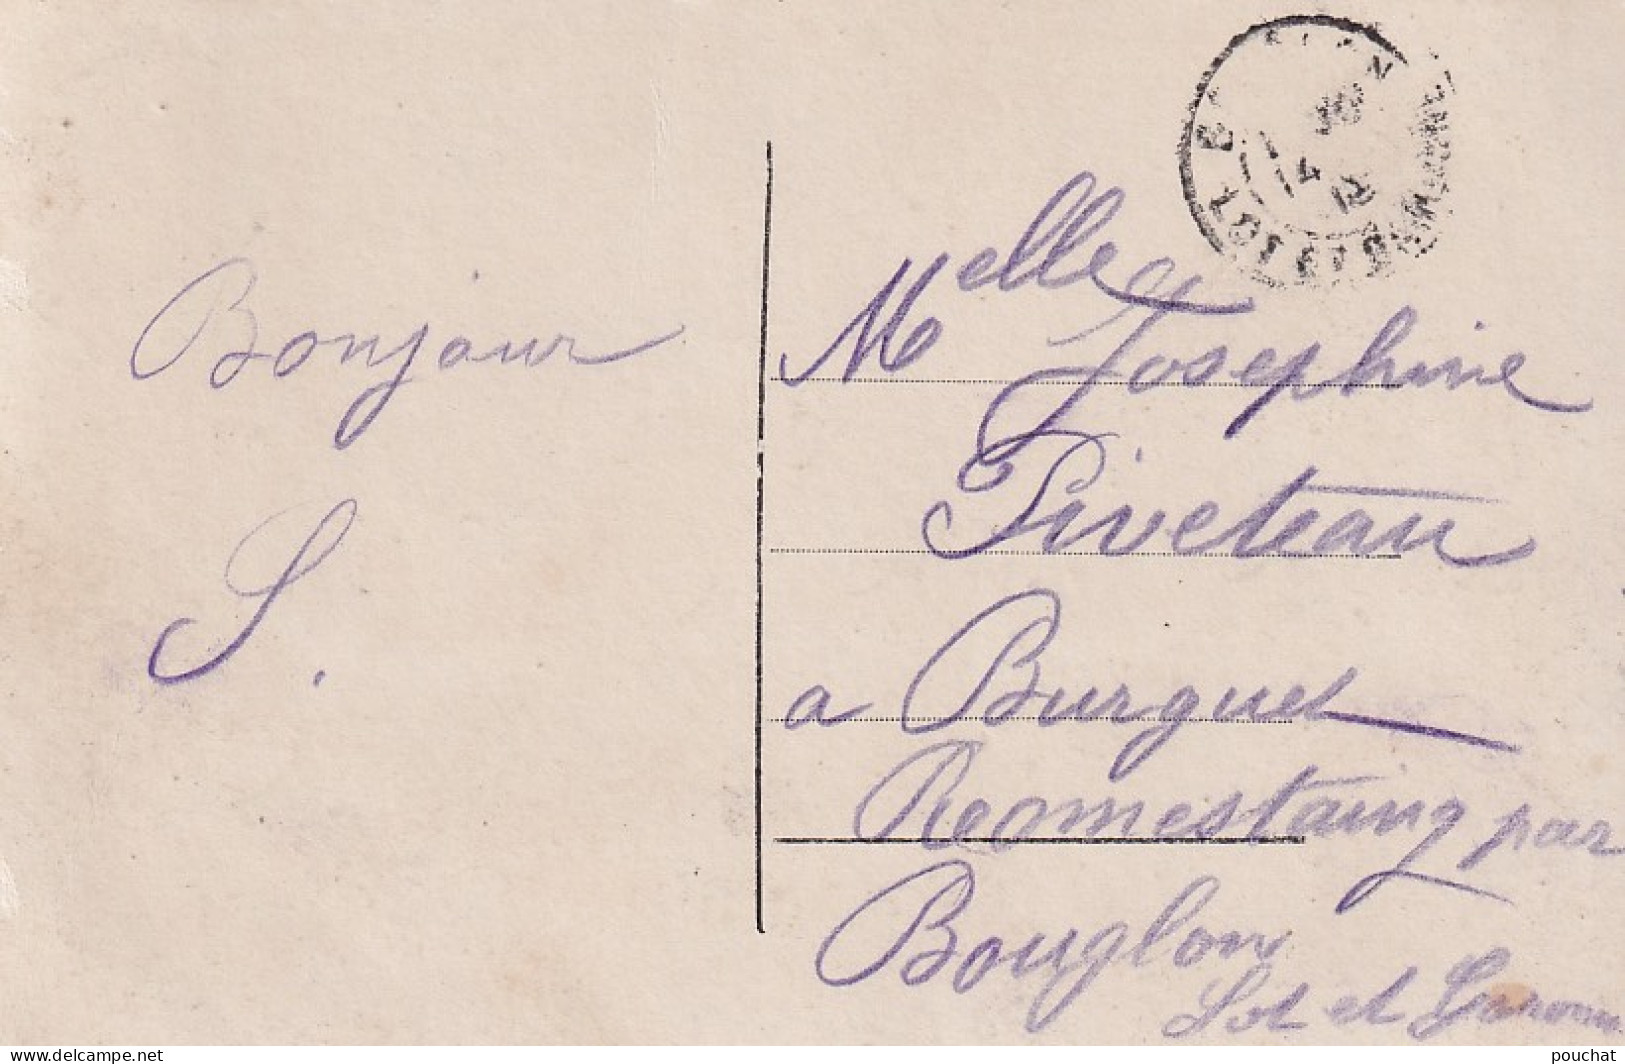 Bonjour
S.
Melle Josephine
Piveteau
a Burguet
Romestaing par
Bouglon
Lot et Garonne
LOT
4 12
www.delcampe.net
pouchat